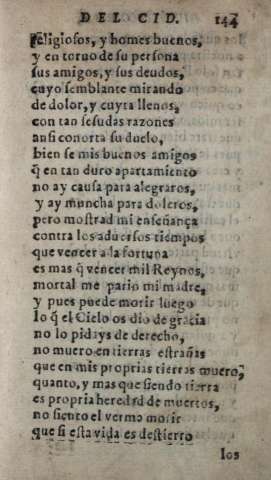 DEL CID. 144
religiosos, y homes buenos,
y en toruo de su persona
sus amigos, y sus deudos,
cuyo semblante mirando
de dolor, y cuyta llenos,
con tan sesudas razones
ansi conorta su duelo,
bien se mis buenos amigos
q̃ en tan duro apartamiento
no ay causa para alegraros,
y ay muncha para doleros,
pero mostrad mi enseñança
contra los aduersos tiempos
que vencer a la fortuna
es mas q̃ vencer mil Reynos,
mortal me pario mi madre,
y pues puede morir luego
lo q̃ el Cielo os dio de gracia
no lo pidays de derecho,
no muero en tierras estrañas
que en mis proprias tierras muero,
quanto, y mas que siendo tierra
es propria heredad de muertos,
no siento el verme morir
que si esta vida es destierro
los